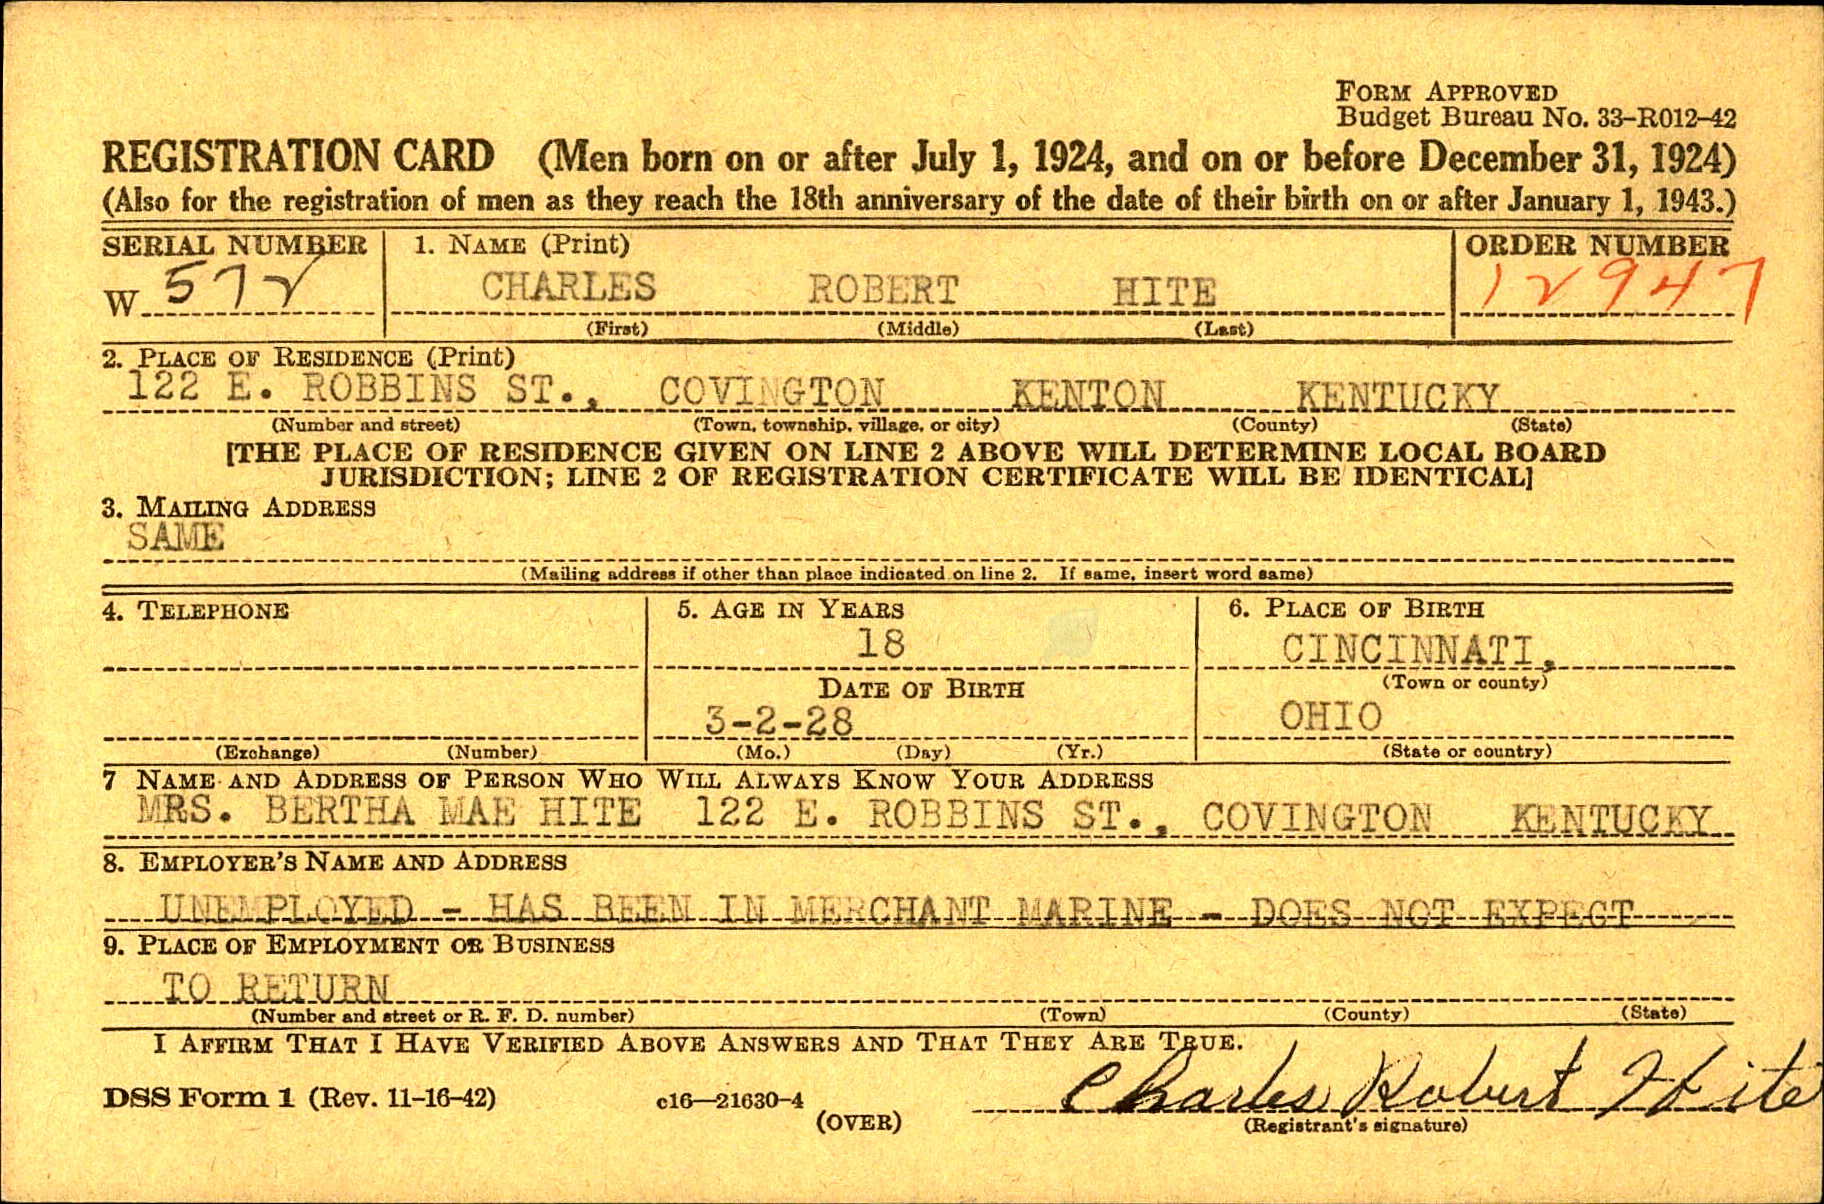 FORM APPROVED
Budget Bureau No. 33-R012-42
REGISTRATION CARD (Men born on or after July 1, 1924, and on or before December 31, 1924)
(Also for the registration of men as they reach the 18th anniversary of the date of their birth on or after January 1, 1943.)
SERIAL NUMBER 1. NAME (Print) ORDER NUMBER
W 572 CHARLES ROBERT HITE 12947
(First) (Middle) (Last)
2. PLACE OF RESIDENCE (Print)
122 E. ROBBINS ST., COVINGTON KENTON KENTUCKY
(Number and street) (Town, township, village, or city) (County) (State)
[THE PLACE OF RESIDENCE GIVEN ON LINE 2 ABOVE WILL DETERMINE LOCAL BOARD
JURISDICTION; LINE 2 OF REGISTRATION CERTIFICATE WILL BE IDENTICAL]
3. MAILING ADDRESS
SAME
(Mailing address if other than place indicated on line 2. If same, insert word same)
4. TELEPHONE 5. AGE IN YEARS 6. PLACE OF BIRTH
18 CINCINNATI,
(Town or county)
DATE OF BIRTH
3-2-28 OHIO
(Exchange) (Number) (Mo.) (Day) (Yr.) (State or country)
7 NAME AND ADDRESS OF PERSON WHO WILL ALWAYS KNOW YOUR ADDRESS
MRS. BERTHA MAE HITE 122 E. ROBBINS ST., COVINGTON KENTUCKY
8. EMPLOYER'S NAME AND ADDRESS
UNEMPLOYED - HAS BEEN IN MERCHANT MARINE - DOES NOT EXPECT
9. PLACE OF EMPLOYMENT OR BUSINESS
TO RETURN
(Number and street or R. F. D. number) (Town) (County) (State)
I AFFIRM THAT I HAVE VERIFIED ABOVE ANSWERS AND THAT THEY ARE TRUE.
DSS Form 1 (Rev. 11-16-42) c16—21630-4 Charles Robert Hite
(OVER) (Registrant's signature)